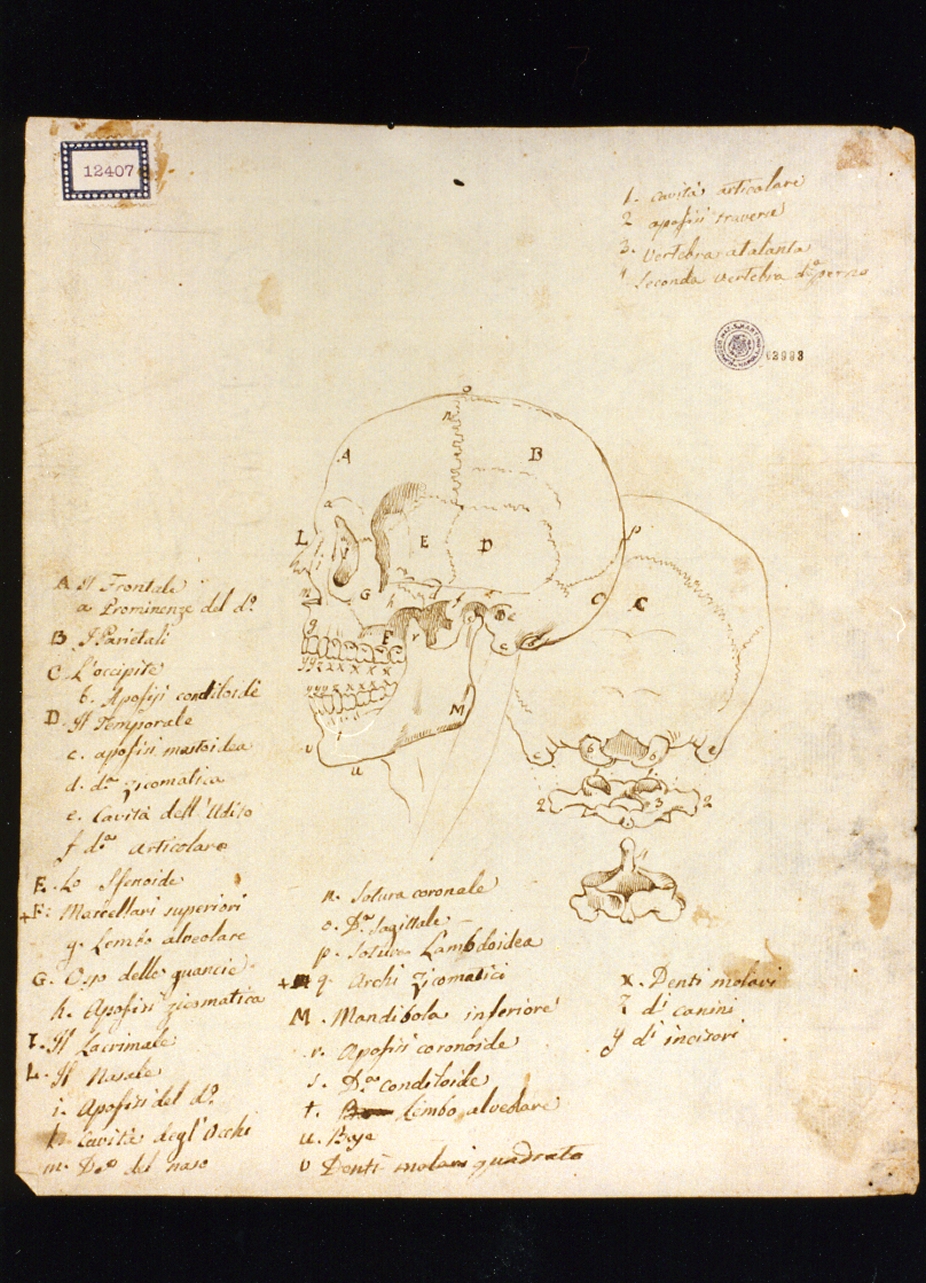 12407
1. cavità articolare
2 apofisi traverse
3. vertebra atalanta
Seconda vertebra d.a perno
02993
o
n
A
B
a
L
E
D
p
G
h
d
f
C
C
m
g
F
r
e
c
M
v
u
c
b
b
c
2
3
2
A Il Frontale
a Prominenze del d.o
B I Parietali
C L'occipite
b. Apofisi conditoidè
D. Il Temporale
c. apofisi mastoidea
d. d.a zicomatica
e. Cavità dell'Udito
f d.a articolare
E. Lo Sfenoide
+F: Mascellari superiori
g. Lembo alveolare
G. Osso delle guancie
h. Apofisi zicomatica
I. Il Lacrimale
L. Il Nasale
i. Apofisi del d.o
Cavità degl'Occhi
m. D.o del naso
n. Sotura coronale
o. D.a Sagittale
p. Sotura Lambdoidea
+ q. Archi Zicomatici
M. Mandibola inferiore
r. Apofisi coronoide
s. D.a conditoide
t. Lembo alveolare
u. Base
v Denti molari quadrato
x. Denti molari
Z d.i canini
y d.i incisori